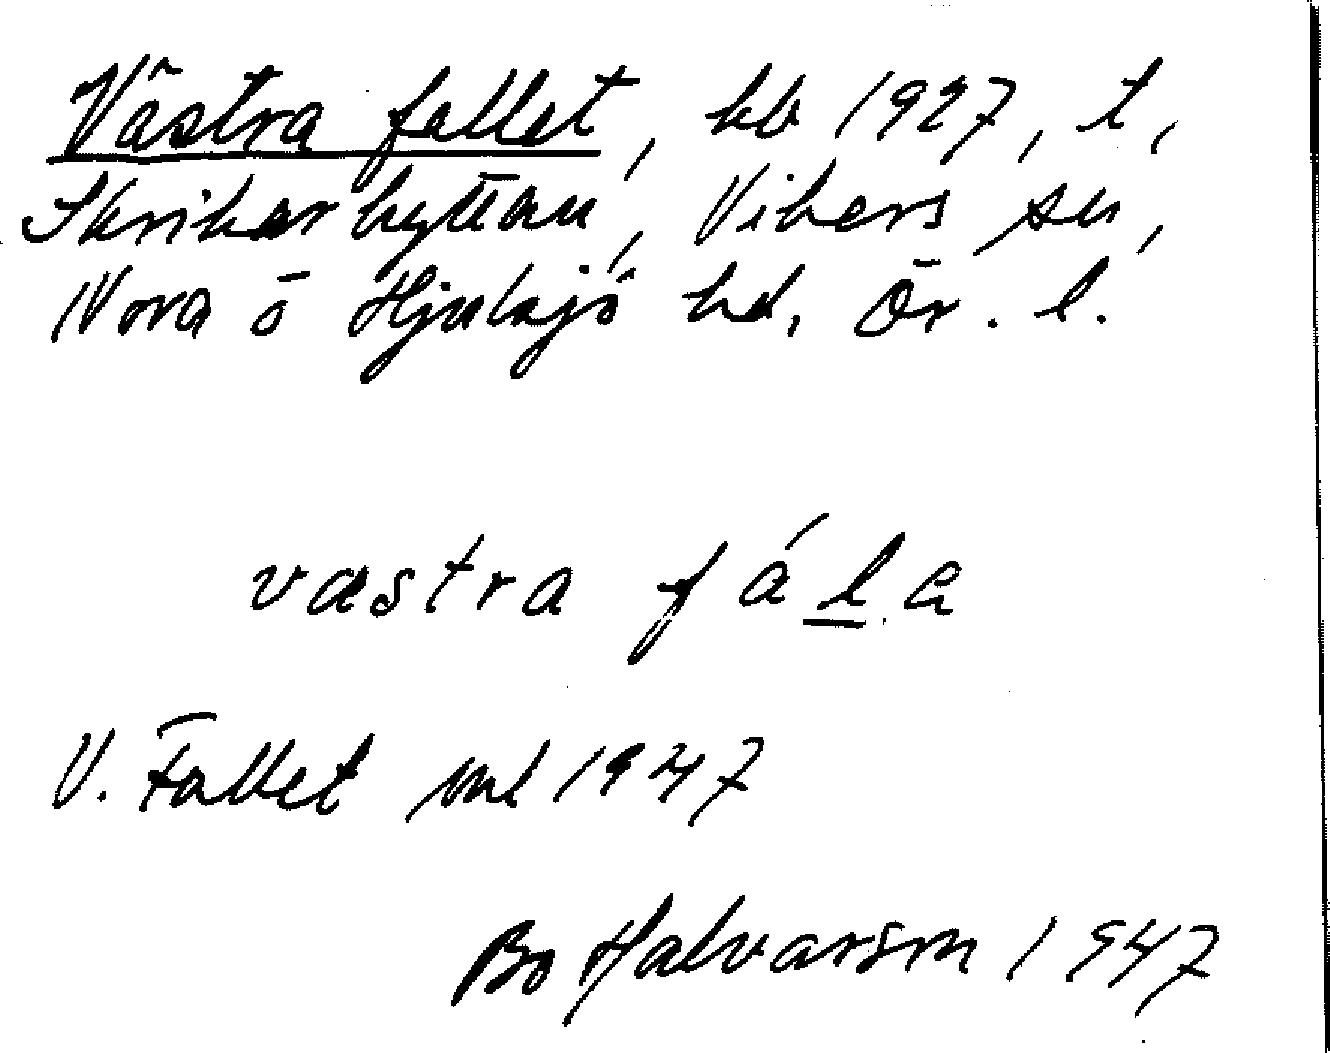 Västra fallet, kb 1927, t,
Skrikarhyttan, Vikers sn,
Nora ō Hjulsjö hd, Ör. l.
væstra fáḻa
V. Fallet ml 1947
Bo Halvarson 1947